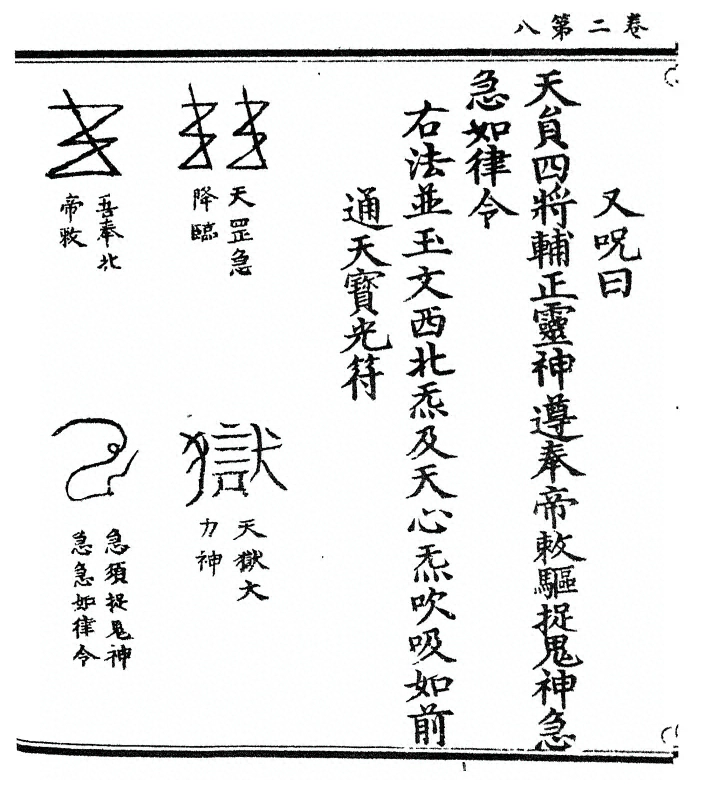 卷二第八
又呪曰
天貟四將輔正靈神遵奉帝敕驅捉鬼神急
急如律令
右法並玉文西北炁及天心炁吹吸如前
通天寶光符
天罡急
降臨
天獄大
力神
吾奉北
帝敕
急須捉鬼神
急急如律令